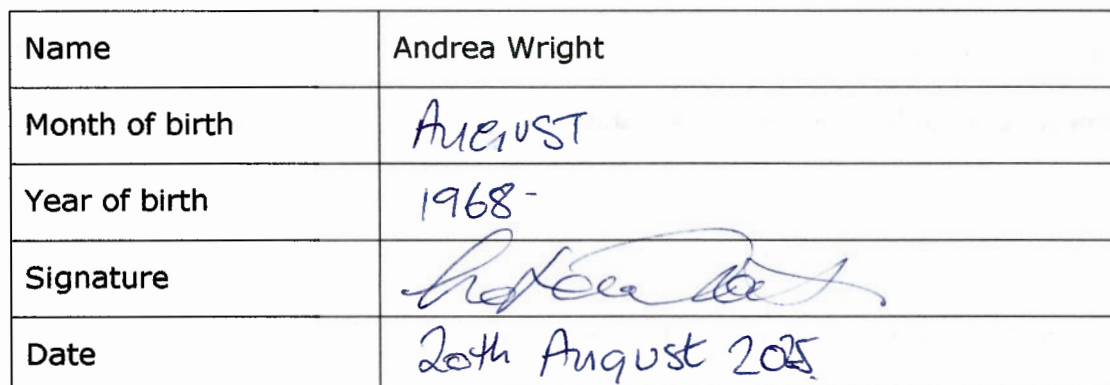 Name Andrea Wright
Month of birth AUGUST
Year of birth 1968-
Signature
Date 20th August 2025